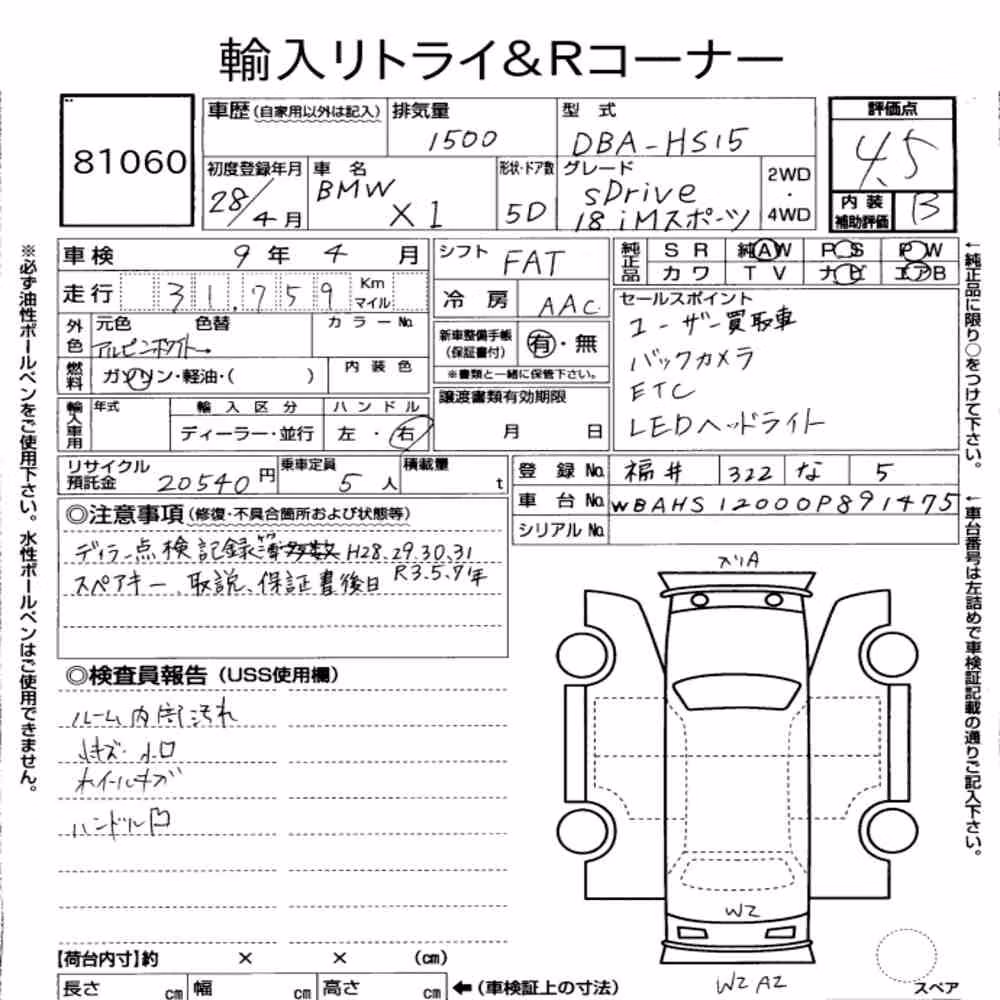 輸入リトライ&Rコーナー
81060
車歴(自家用以外は記入)
排気量
1500
型 式
DBA-HS15
評価点
4.5
初度登録年月
28/4月
車 名
BMW X1
形状・ドア数
5D
グレード
sDrive
18iMスポーツ
2WD
・
4WD
内装
補助評価
B
※必ず油性ボールペンをご使用下さい。水性ボールペンはご使用できません。
車検 9年 4 月
走行 31,759 Km
マイル
外色
元色 色替
アルピンホワイト→
カラーNo.
燃料
ガソリン・軽油・( )
内装色
輸入車用
年式
輸入区分
ディーラー・並行
ハンドル
左・右
シフト
FAT
冷房
AAC
新車整備手帳
(保証書付)
有・無
※書類と一緒に保管下さい。
譲渡書類有効期限
月 日
純正品
SR 純AW PS PW
カワ TV ナビ エアB
セールスポイント
ユーザー買取車
バックカメラ
ETC
LEDヘッドライト
←純正品に限り○をつけて下さい。
リサイクル
預託金
20540円
乗車定員
5人
積載量
t
登録No. 福井 322 な 5
車台No. WBAHS12000P891475
シリアルNo.
←車台番号は左詰めで車検証記載の通りご記入下さい。
◎注意事項(修復・不具合箇所および状態等)
ディラー点検記録簿 H28.29.30.31
R3.5.7年
スペアキー、取説、保証書後日
◎検査員報告(USS使用欄)
ルーム内部汚れ
小キズ・小凹
ホイールキズ
ハンドル凹
A
WZ
WZ AZ
スペア
【荷台内寸】約 × × (cm)
長さ cm 幅 cm 高さ cm
←(車検証上の寸法)